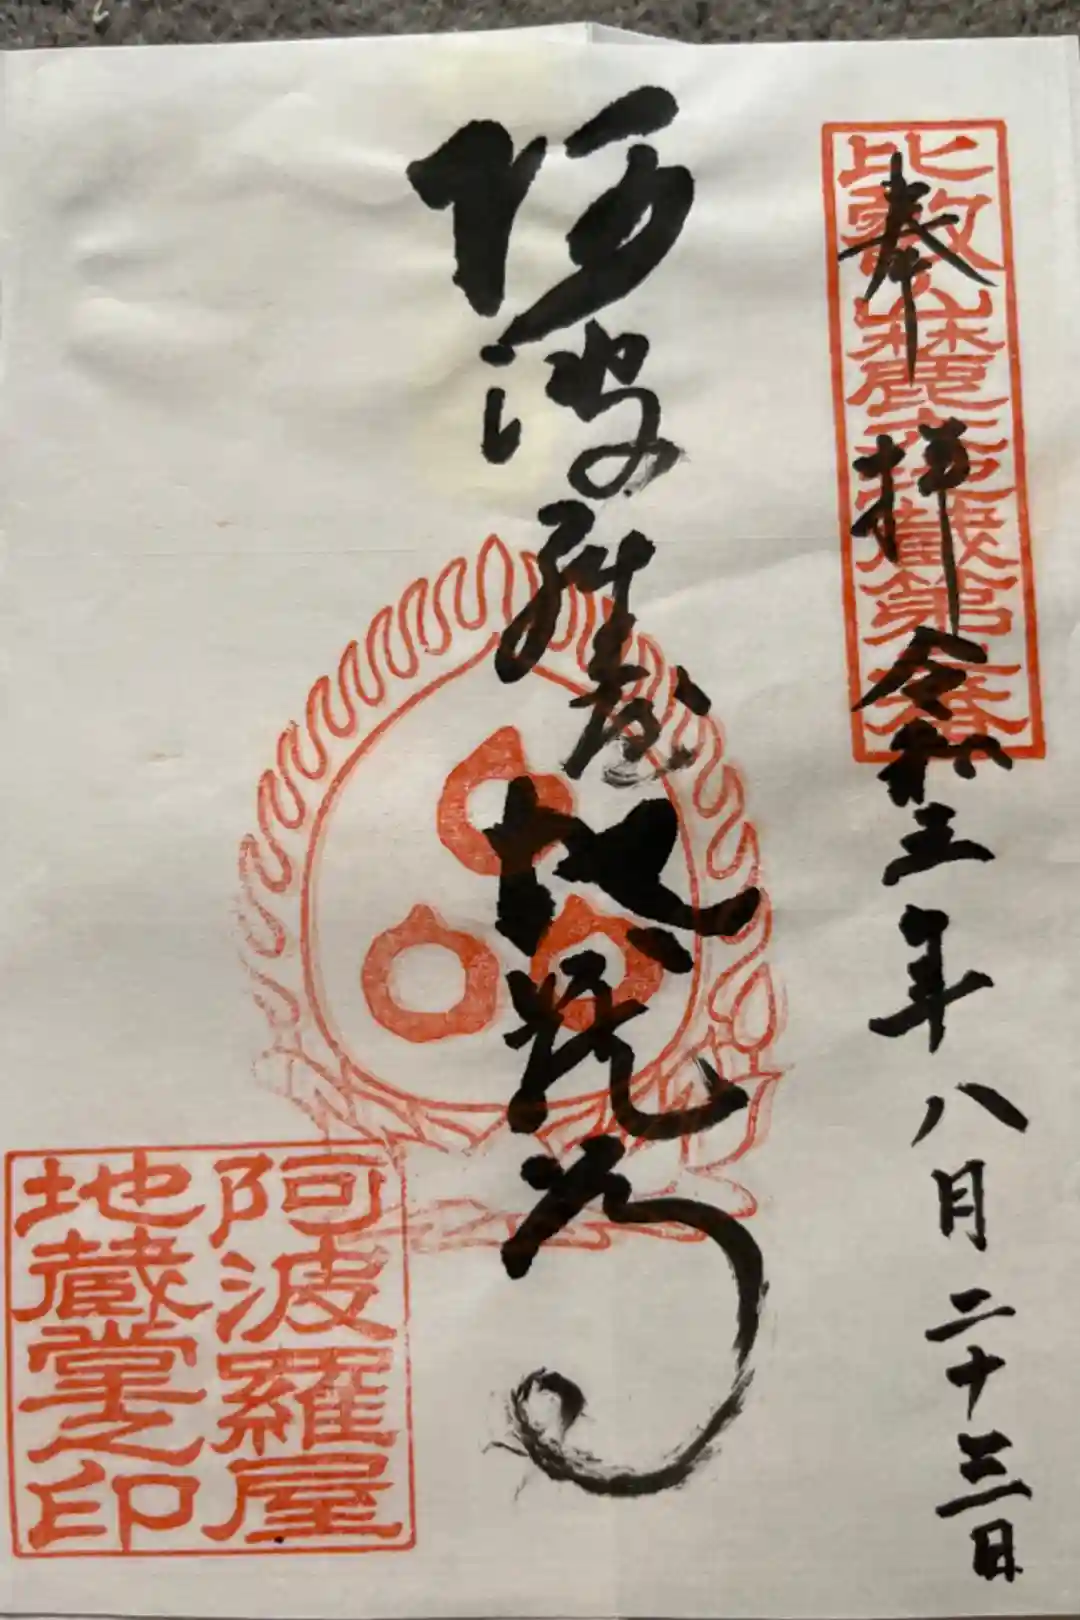 比叡山麓六地蔵第番
奉拝 令和三年八月二十三日
阿波羅屋地蔵尊
阿波羅屋
地蔵堂之印